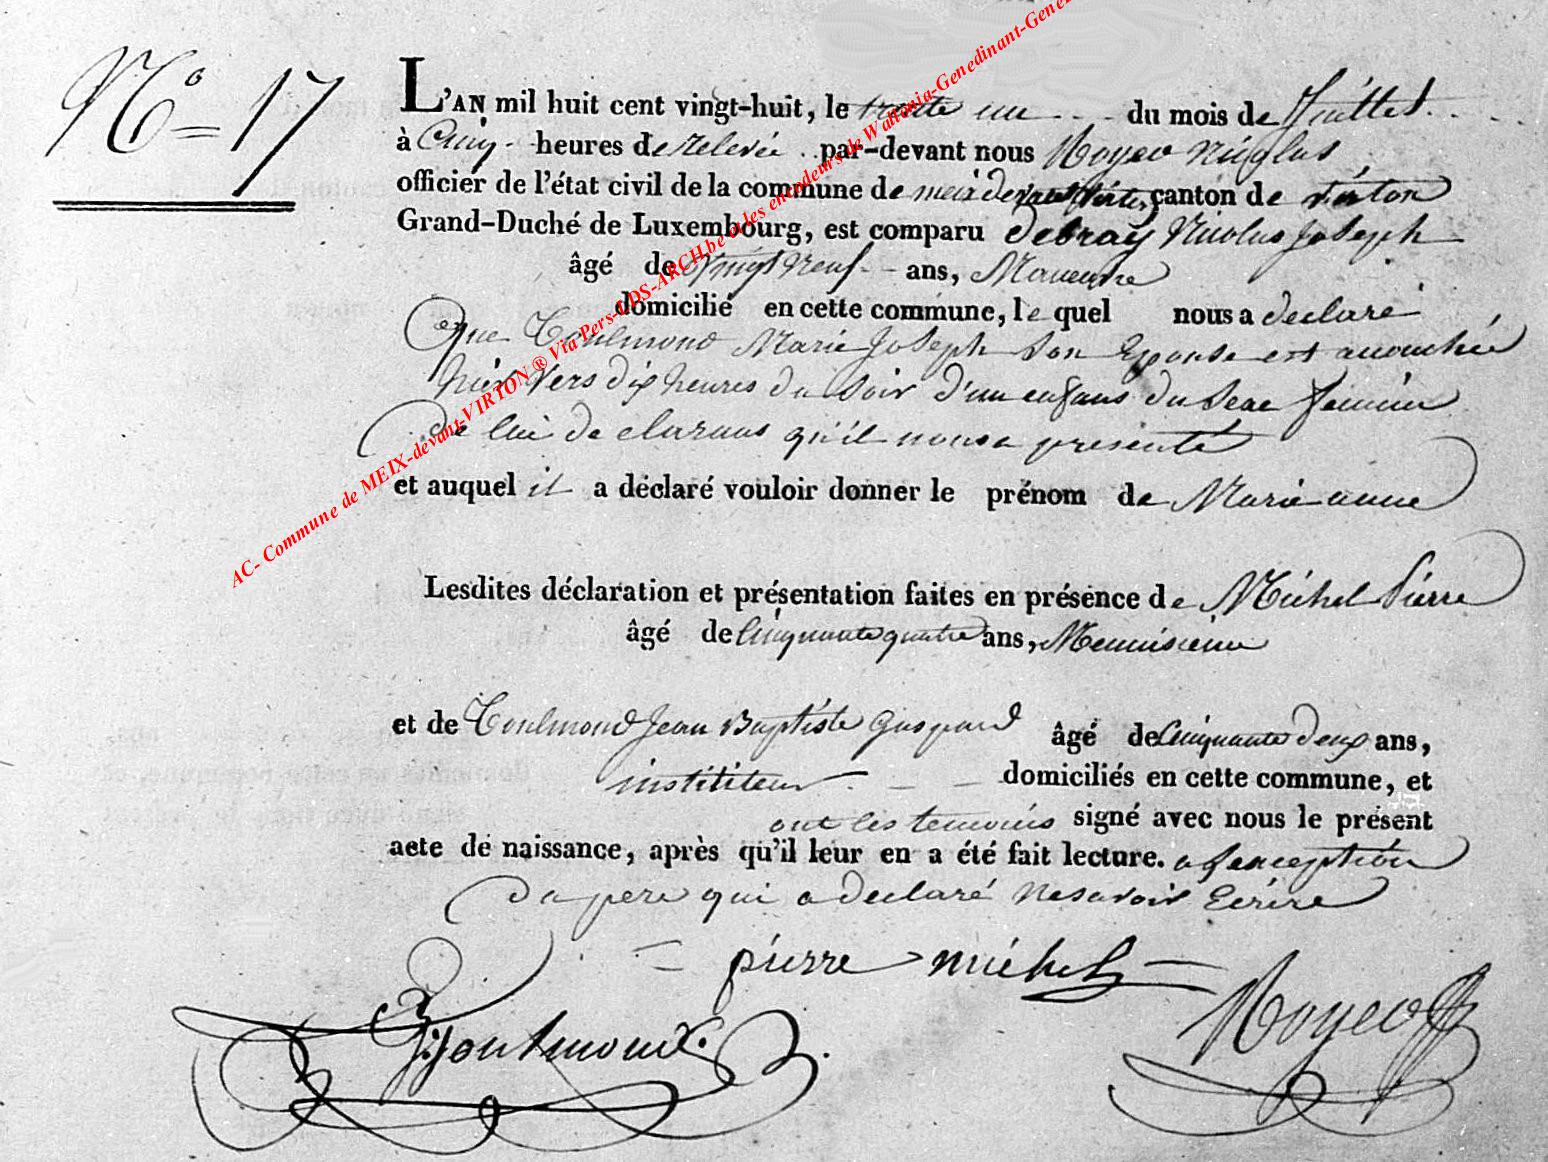 N° 17
L'AN mil huit cent vingt-huit, le trente un du mois de Juillet
à Cinq heures de relevée par-devant nous Noyer Nicolas
officier de l'état civil de la commune de meix devant virton canton de virton
Grand-Duché de Luxembourg, est comparu debray Nicolas Joseph
âgé de vingt neuf ans, Manœuvre
domicilié en cette commune, le quel nous a declaré
que Toulmond Marie Joseph son Epouse est accouchée
hier vers dix heures du soir d'un enfans du sexe feminin
de lui declarans qu'il nous a presenté
et auquel il a déclaré vouloir donner le prénom de Marie anne
Lesdites déclaration et présentation faites en présence de Michel Pierre
âgé de Cinquante quatre ans, Menuisier
et de Toulmond Jean Baptiste Gaspard âgé de Cinquante deux ans,
instititeur domiciliés en cette commune, et
ont les temoins signé avec nous le présent
acte de naissance, après qu'il leur en a été fait lecture. a l'exception
du pere qui a declaré ne savoir Ecrire
pierre michel
Toulmond. Noyer
AC- Commune de MEIX-devant-VIRTON ® Via Pers-LDS-ARCH.be et les encodeurs de Wallonia-Genedinant-Gene